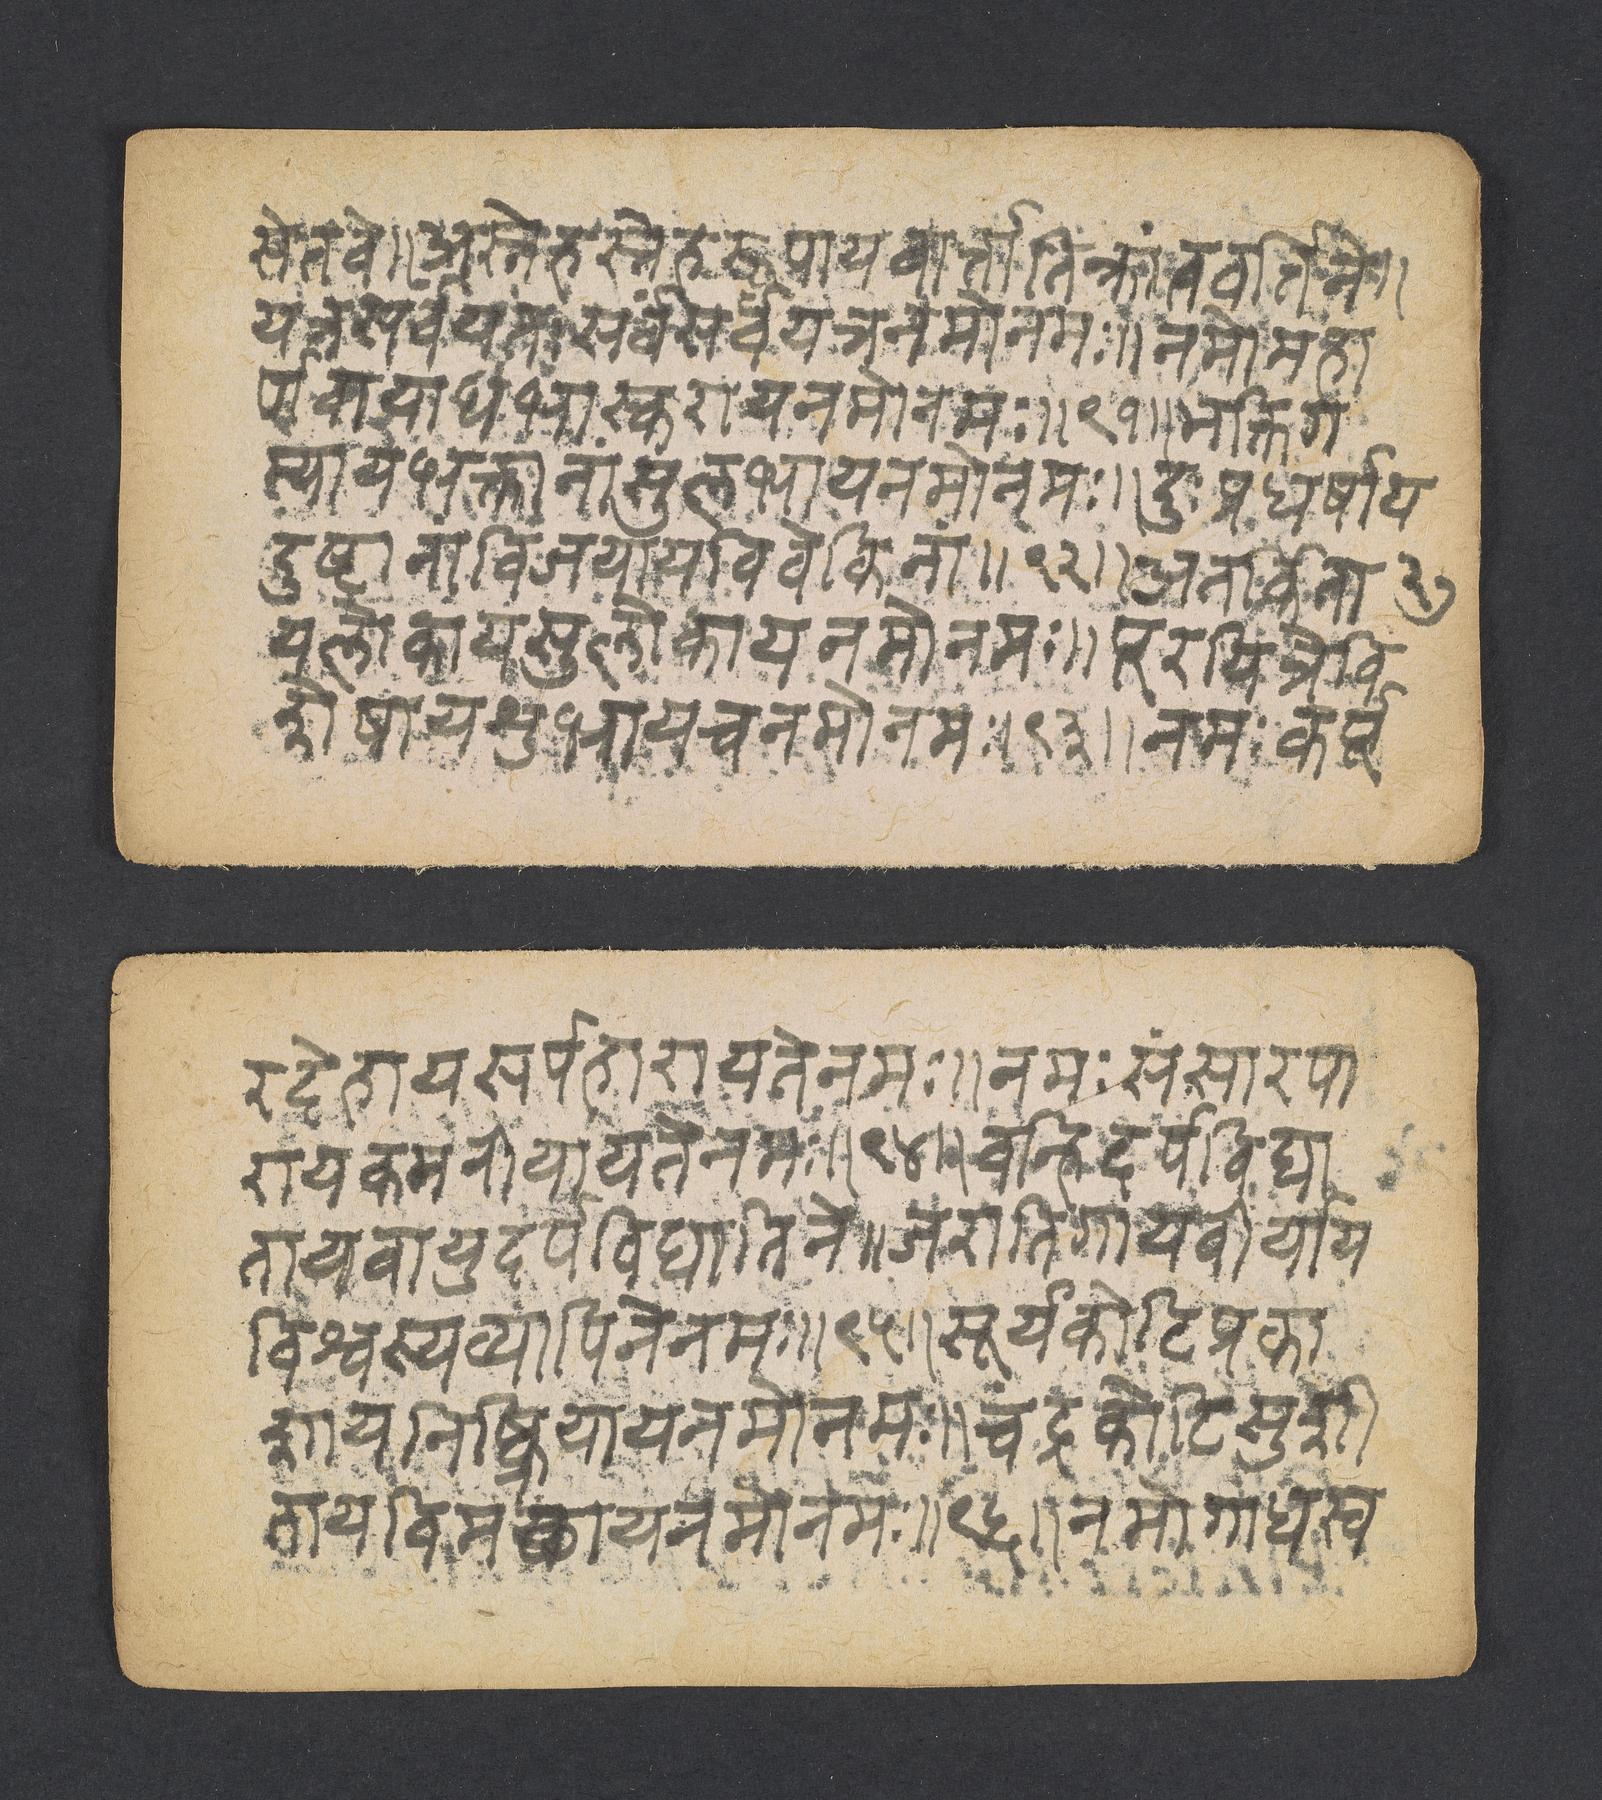 सेतवे॥अस्नेहस्नेहरूपायवार्त्तातिक्रांतवर्त्तिने॥
यत्रसर्वंयतःसर्वंसर्वंयत्रनमोनमः॥नमोमहा
र्णवायाथभास्करायनमोनमः॥९१॥भक्तिग
म्यायभक्तानांसुलभायनमोनमः॥दुःप्रधर्षाय
दुष्टानांविजयायविवेकिनां॥९२॥अतर्किता
यलोकायसुलोकायनमोनमः॥पूरयित्रेवि
शेषायशुभायचनमोनमः॥९३॥नमःकर्पू
२७
रदेहायसर्पहारायतेनमः॥नमःसंसारपा
रायकमनीयायतेनमः॥९४॥वह्निदर्पविघा
तायवायुदर्पविघातिने॥जरातिगायवीर्याय
विश्वस्यव्यापिनेनमः॥९५॥सूर्यकोटिप्रका
शायनिष्क्रियायनमोनमः॥चंद्रकोटिसुशी
तायविमलायनमोनमः॥९६॥नमोगाधस्व